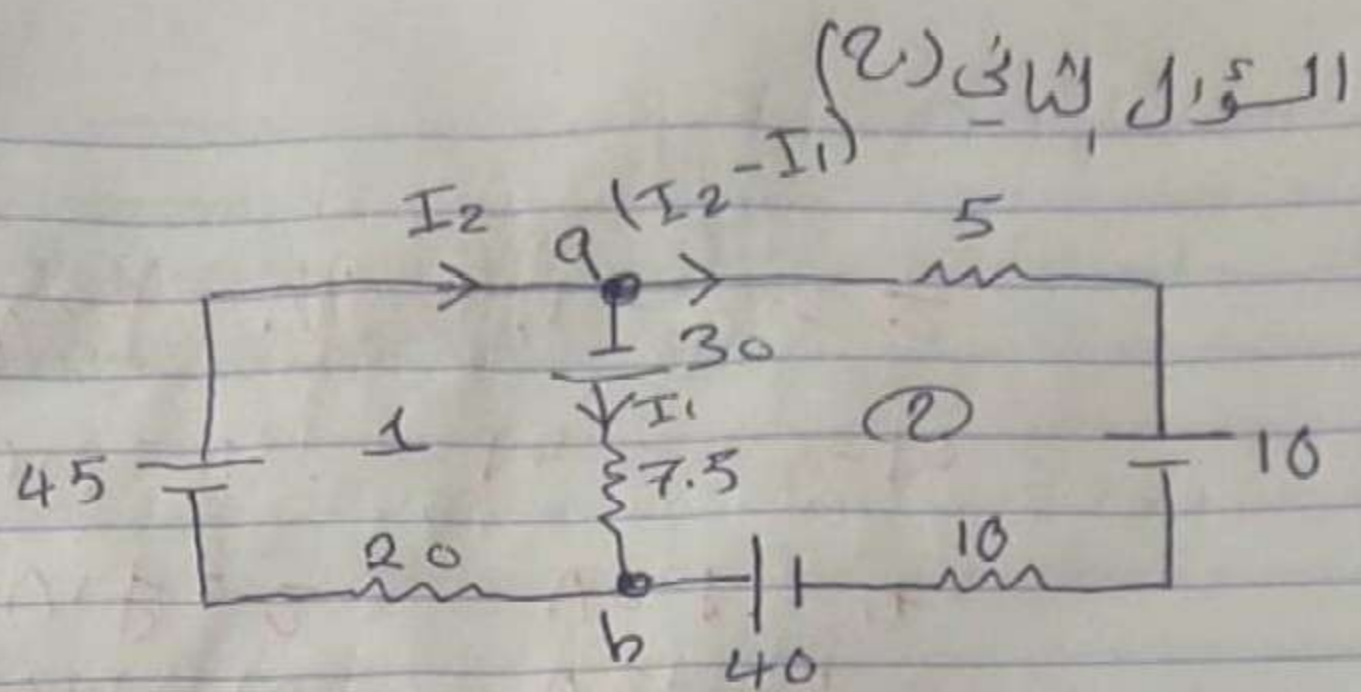 السؤال الثاني (2)
I2 a (I2-I1) 5
30
I1
45 1 7.5 2 10
20 10
b 40